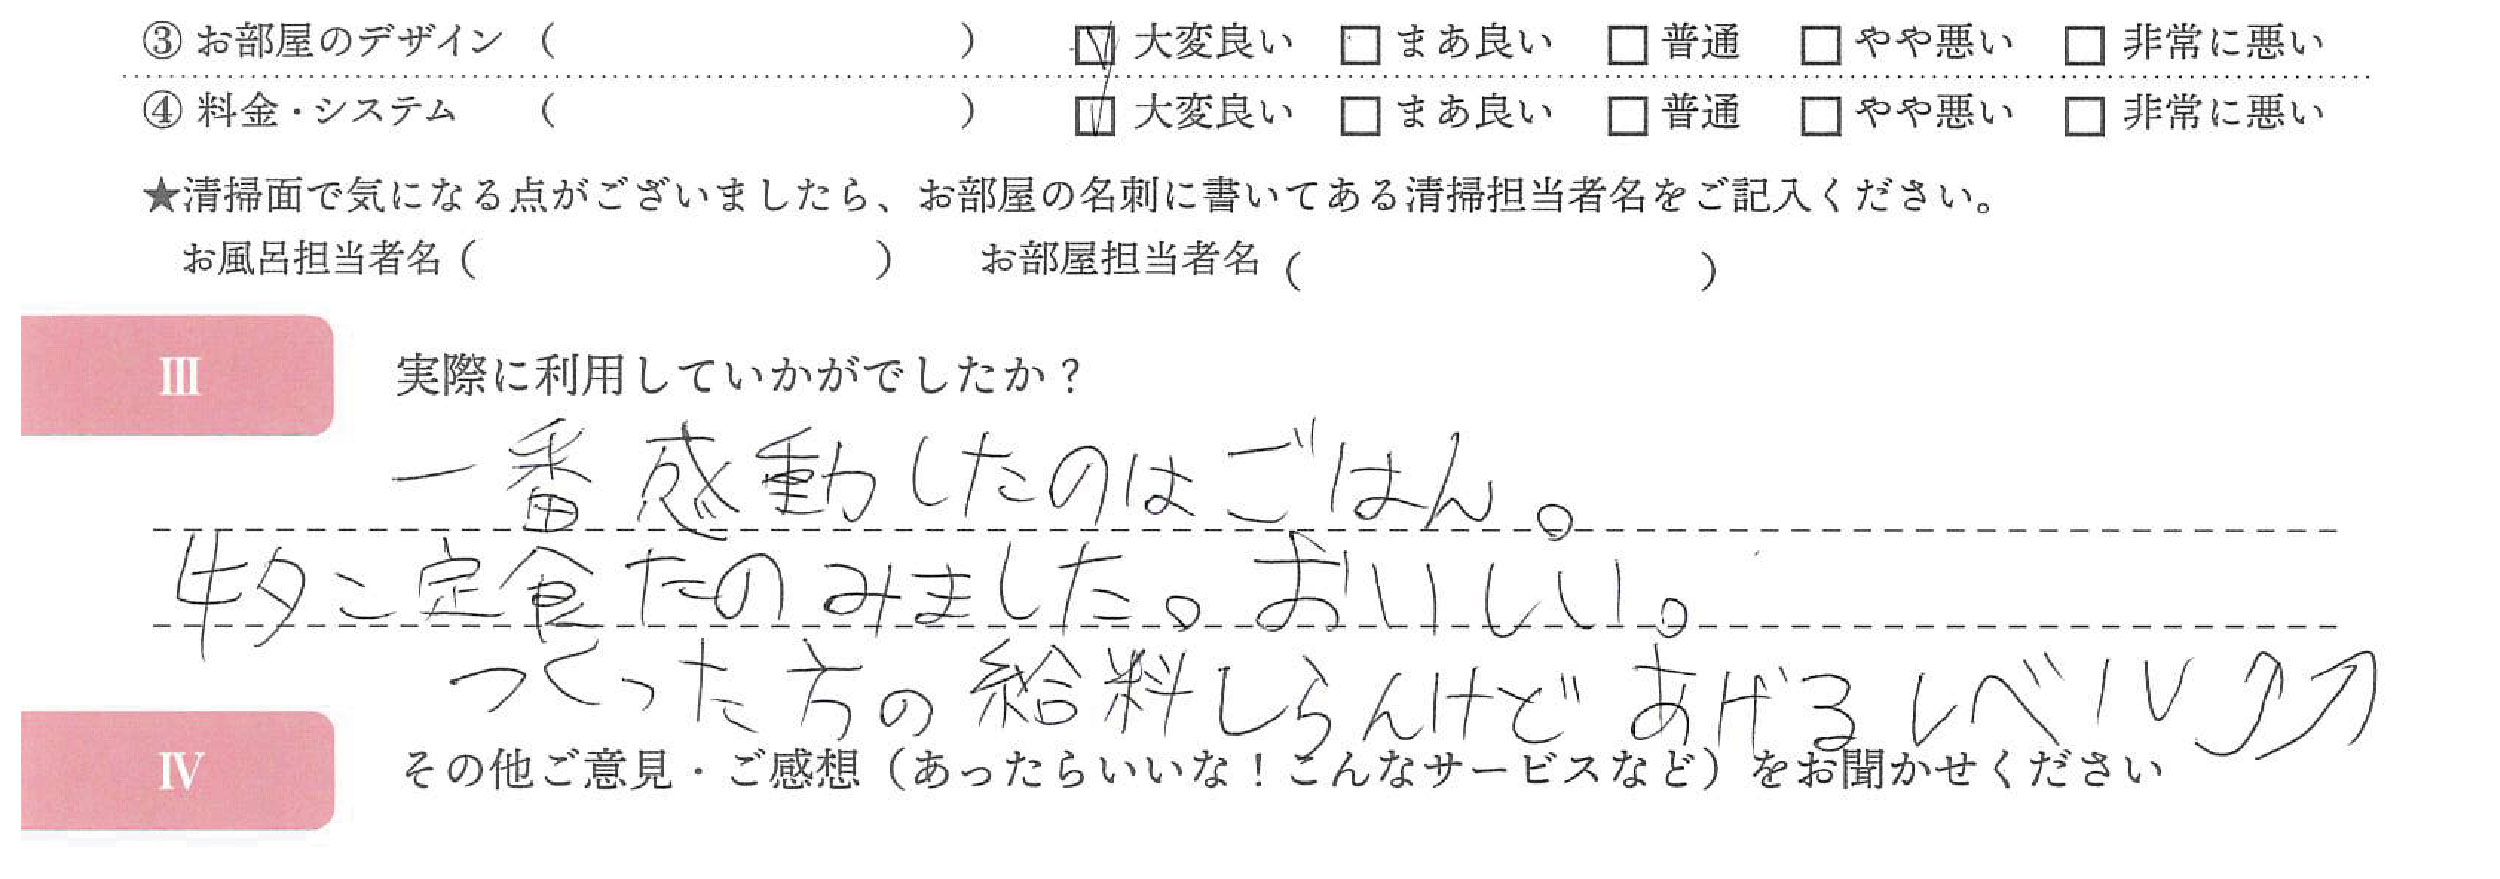 ③ お部屋のデザイン （ ） ☑ 大変良い □ まあ良い □ 普通 □ やや悪い □ 非常に悪い
④ 料金・システム （ ） ☑ 大変良い □ まあ良い □ 普通 □ やや悪い □ 非常に悪い
★清掃面で気になる点がございましたら、お部屋の名刺に書いてある清掃担当者名をご記入ください。
お風呂担当者名（ ） お部屋担当者名（ ）
Ⅲ 実際に利用していかがでしたか？
一番感動したのはごはん。
牛タン定食たのみました。おいしい。
つくった方の給料しらんけどあげるレベル⤴⤴
Ⅳ その他ご意見・ご感想（あったらいいな！こんなサービスなど）をお聞かせください